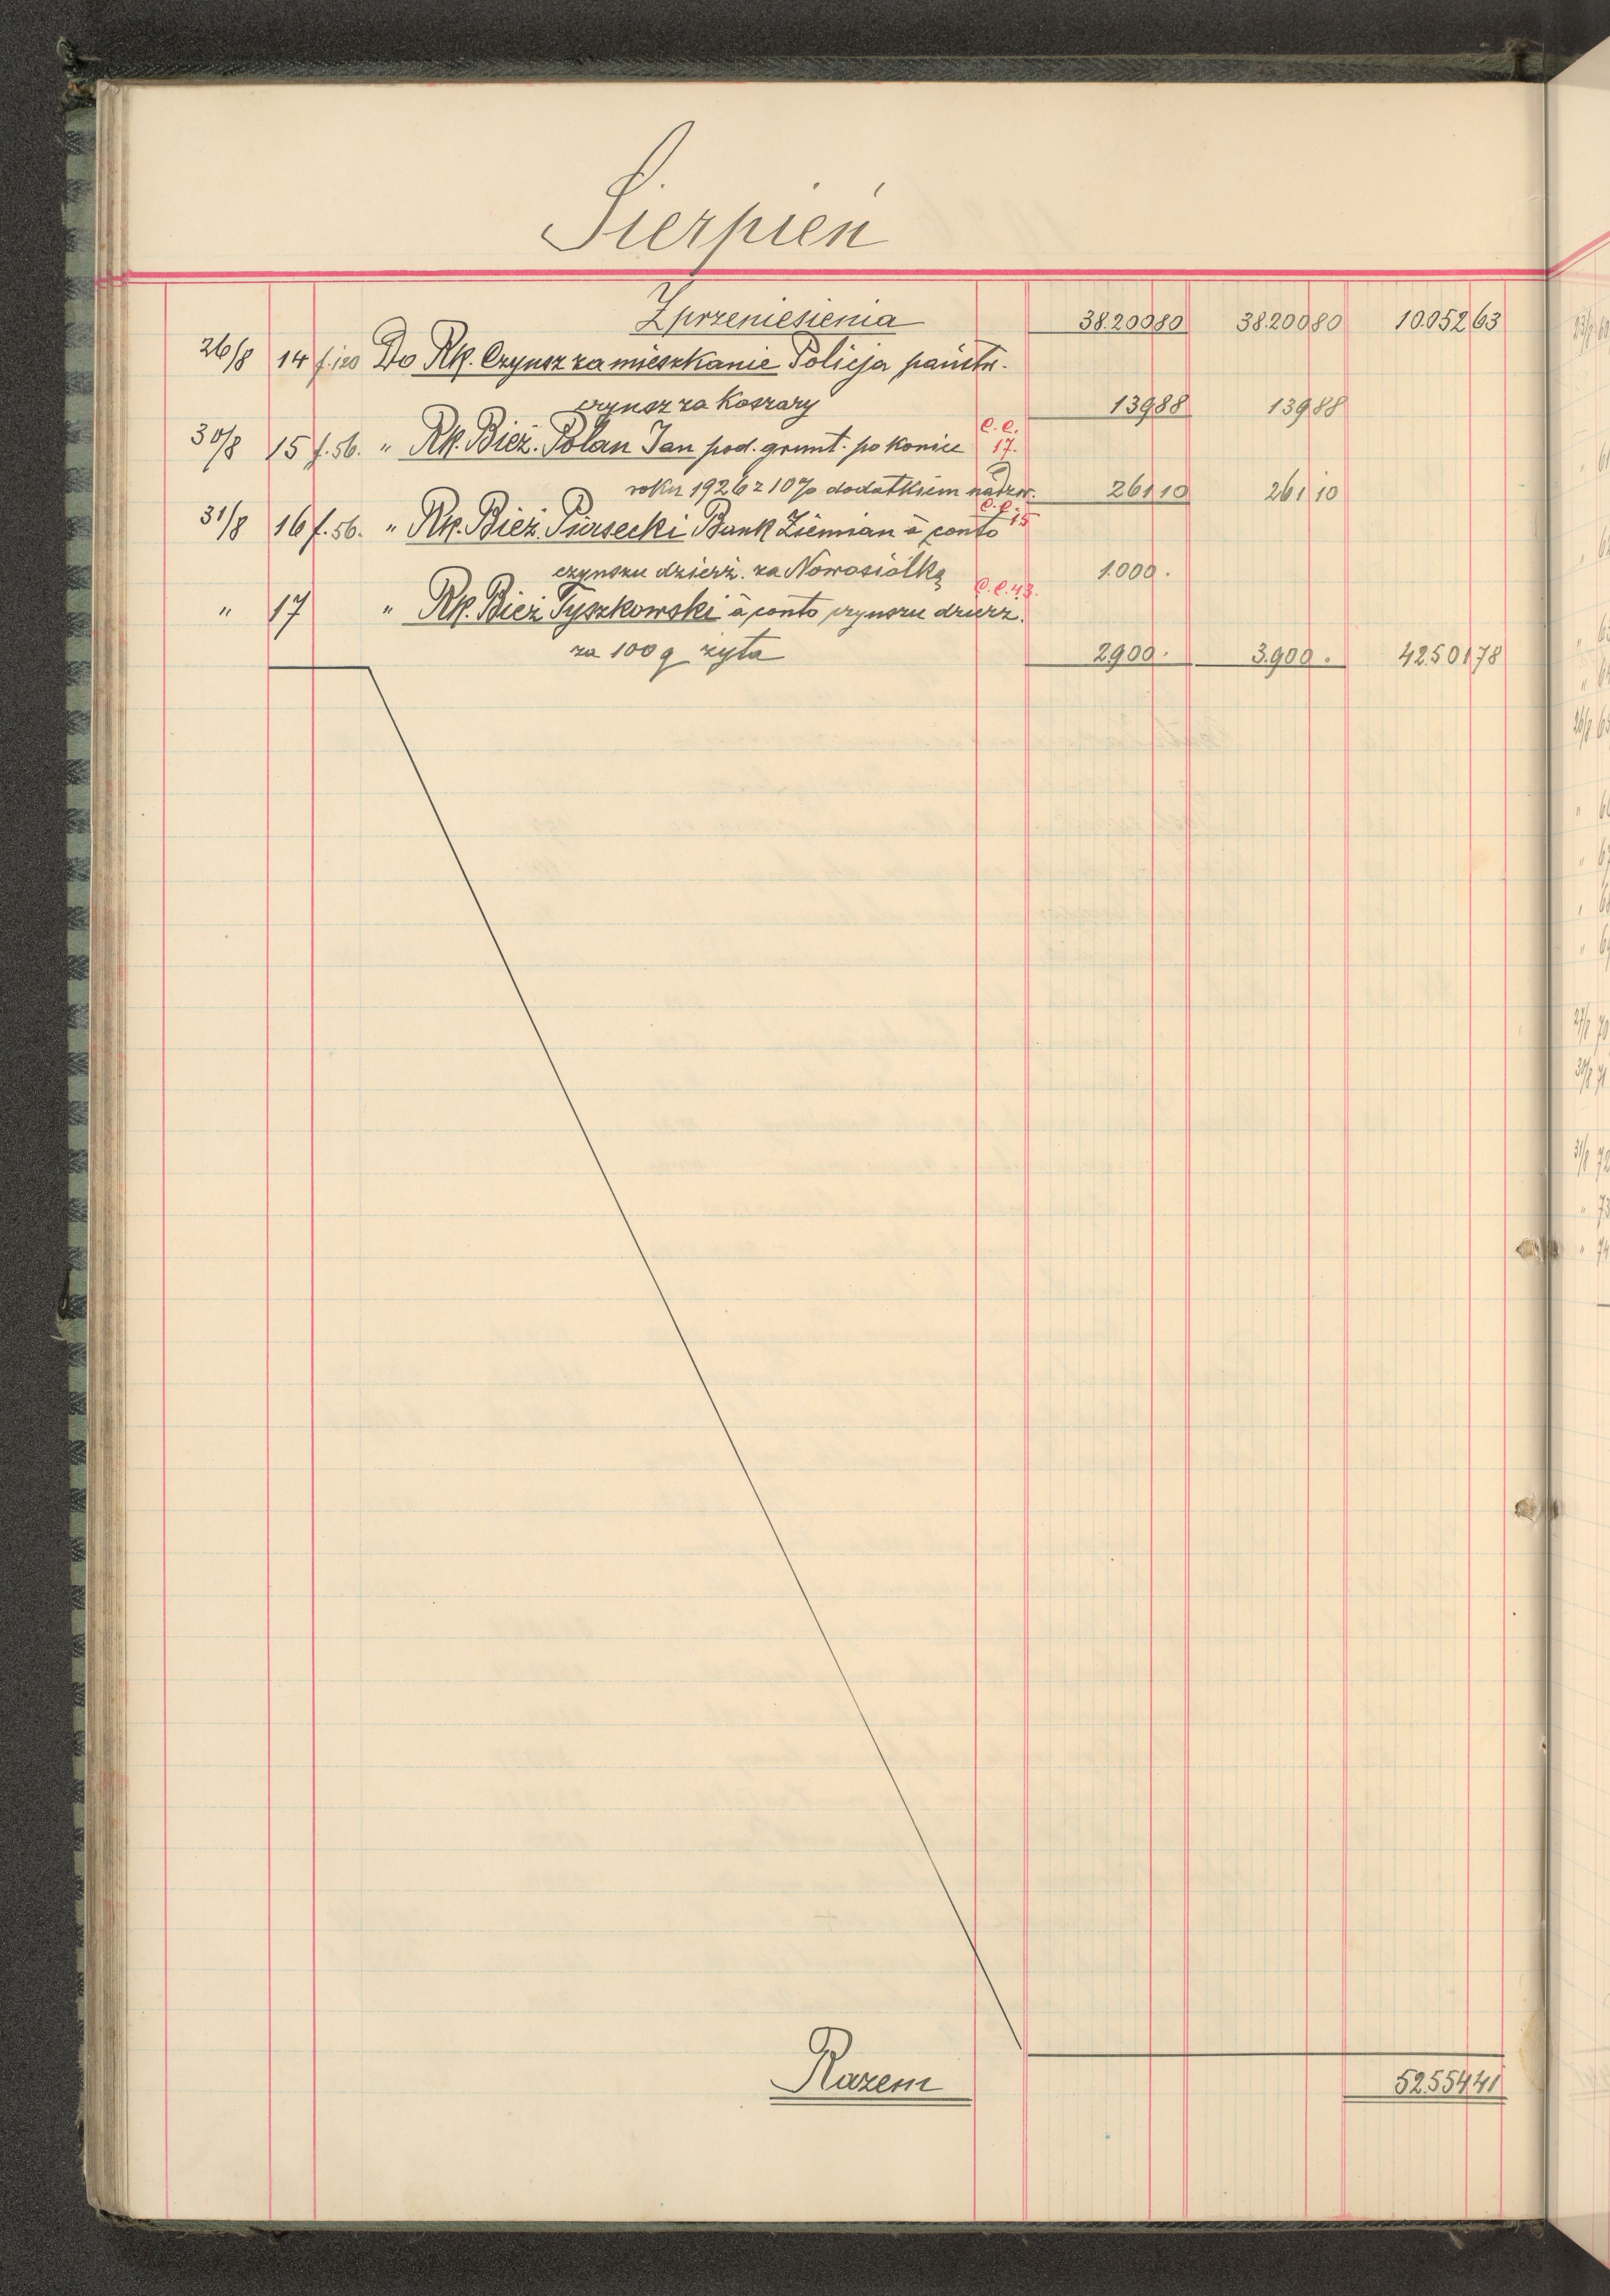 Sierpień
Z przeniesienia 38.200 80 38.200 80 10.052 63
26/8 14 f.120 Do Rk. Czynsz za mieszkanie Policja państw.
czynsz za koszary 139 88 139 88
30/8 15 f.56. " Rk. Bież. Polan Jan pod. grunt. po koniec C.C. 17.
roku 1926 z 10% dodatkiem nadzw. 261 10 261 10
31/8 16 f.56. " Rk. Bież. Piasecki Bank Ziemian à conto C.C. 15
czynszu dzierż. za Nowosiółkę 1.000 .
" 17 " Rk. Bież Tyszkowski à conto czynszu dzierż. C.C. 43.
za 100 q żyta 2.900 . 3.900 . 42.501 78
Razem 52.554 41